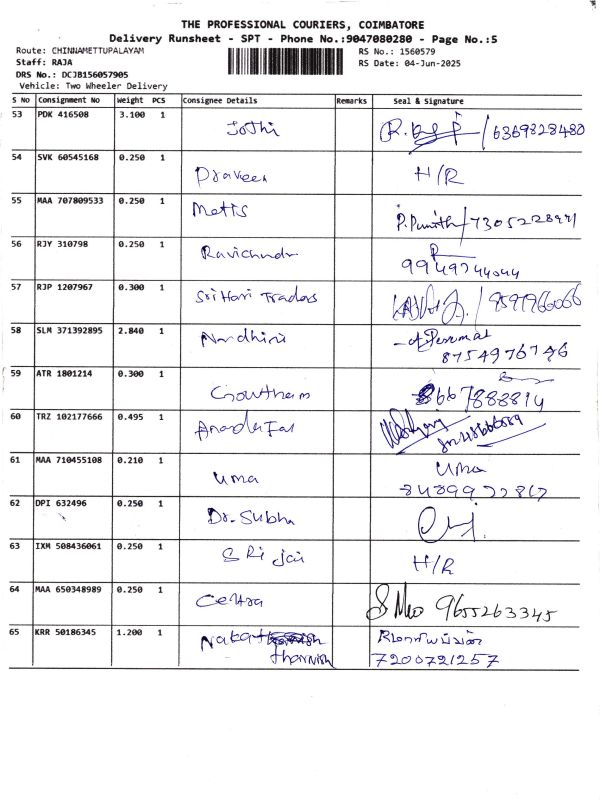 THE PROFESSIONAL COURIERS, COIMBATORE
Delivery Runsheet - SPT - Phone No.:9047080280 - Page No.:5
Route: CHINNAMETTUPALAYAM
RS No.: 1560579
Staff: RAJA
RS Date: 04-Jun-2025
DRS No.: DCJB156057905
Vehicle: Two Wheeler Delivery
S No Consignment No Weight PCS Consignee Details Remarks Seal & Signature
53 PDK 416508 3.100 1 Jothi 6369828480
54 SVK 60545168 0.250 1 Praveen H/R
55 MAA 707809533 0.250 1 Metis P. Punith
56 RJY 310798 0.250 1 Ravichndr 9949744044
57 RJP 1207967 0.300 1 Sri Hari Traders
58 SLM 371392895 2.840 1 Nandhini Perumal
8754976746
59 ATR 1801214 0.300 1 Gowtham 8667888814
60 TRZ 102177666 0.495 1
61 MAA 710455108 0.210 1 Uma Uma
62 DPI 632496 0.250 1 Dr. Subha
63 IXM 508436061 0.250 1 Sri jai H/R
64 MAA 650348989 0.250 1 9655263345
65 KRR 50186345 1.200 1
7200721257